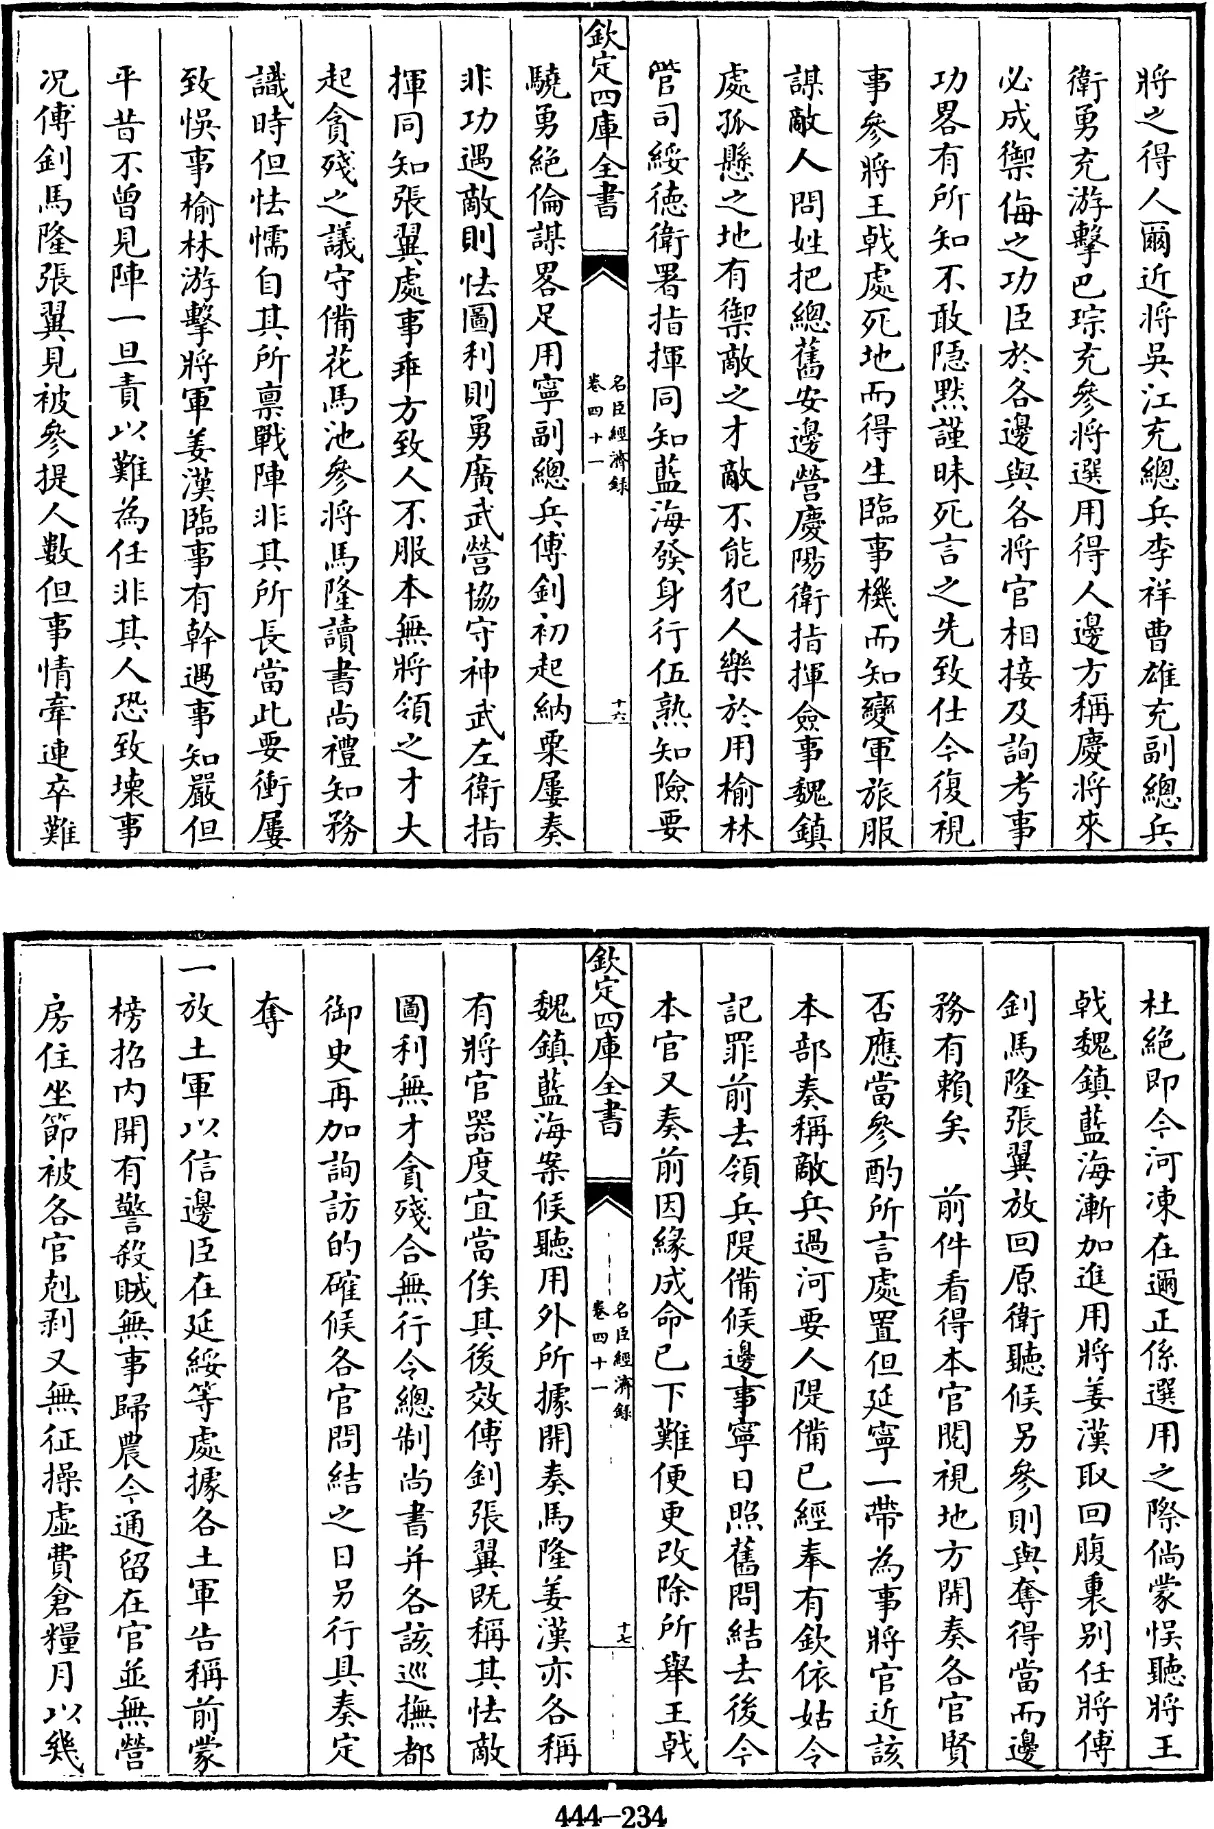 將之得人爾近將吳江充總兵李祥曹雄充副總兵
衛勇充游擊巴琮充參將選用得人邊方稱慶將來
必成禦侮之功臣於各邊與各將官相接及詢考事
功畧有所知不敢隱默謹昧死言之先致仕今復視
事參將王戟處死地而得生臨事機而知變軍旅服
謀敵人問姓把總舊安邊營慶陽衛指揮僉事魏鎮
處孤懸之地有禦敵之才敵不能犯人樂於用榆林
管司綏德衛署指揮同知藍海發身行伍熟知險要
欽定四庫全書
名臣經濟録
卷四十一
十六
驍勇絶倫謀畧足用寧副總兵傅釗初起納粟屢奏
非功遇敵則怯圖利則勇廣武營協守神武左衛指
揮同知張翼處事乖方致人不服本無將領之才大
起貪殘之議守備花馬池參將馬隆讀書尚禮知務
識時但怯懦自其所禀戰陣非其所長當此要衝屢
致悞事榆林游擊將軍姜漢臨事有幹遇事知嚴但
平昔不曾見陣一旦責以難為任非其人恐致壞事
况傅釗馬隆張翼見被參提人數但事情牽連卒難
杜絶即今河凍在邇正係選用之際倘蒙悞聽將王
戟魏鎮藍海漸加進用將姜漢取回腹裏别任將傅
釗馬隆張翼放回原衛聽候另參則與奪得當而邊
務有賴矣　前件看得本官閱視地方開奏各官賢
否應當參酌所言處置但延寧一帶為事將官近該
本部奏稱敵兵過河要人隄備已經奉有欽依姑令
記罪前去領兵隄備候邊事寧日照舊問結去後今
本官又奏前因緣成命已下難便更改除所舉王戟
欽定四庫全書
名臣經濟録
卷四十一
十七
魏鎮藍海案候聽用外所據開奏馬隆姜漢亦各稱
有將官器度宜當俟其後效傅釗張翼既稱其怯敵
圖利無才貪殘合無行令總制尚書并各該巡撫都
御史再加詢訪的確候各官問結之日另行具奏定
奪
一放土軍以信邊臣在延綏等處據各土軍告稱前蒙
榜招内開有警殺賊無事歸農今通留在官並無營
房住坐節被各官剋剥又無征操虚費倉糧月以幾
444—234